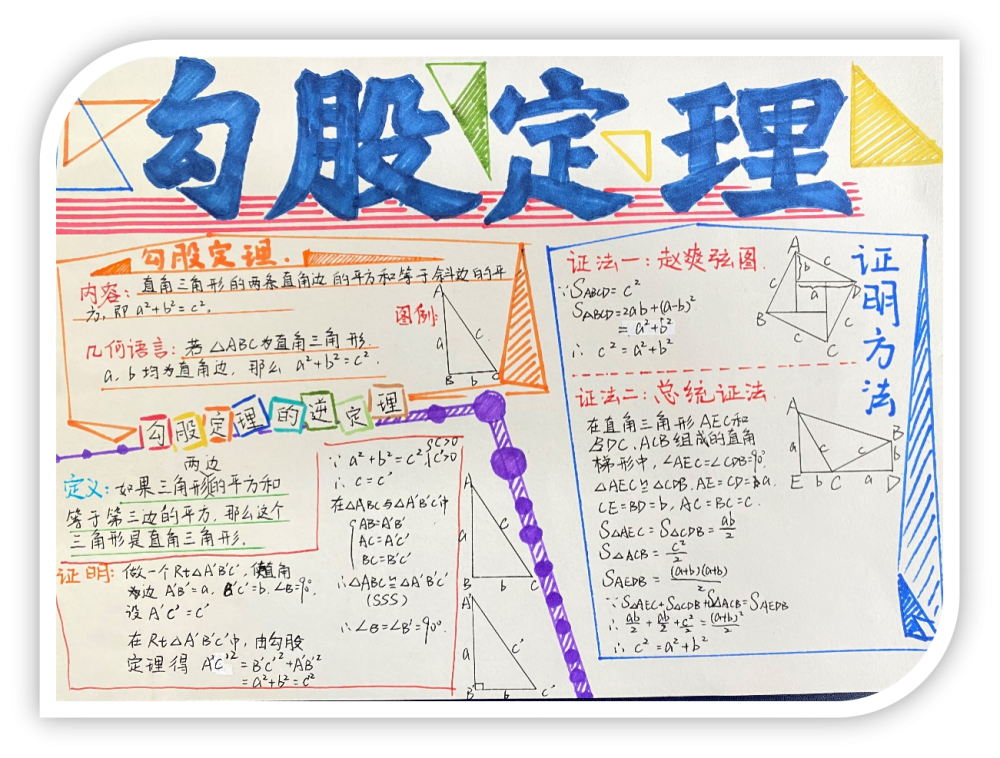 勾股定理
勾股定理.
内容: 直角三角形的两条直角边的平方和等于斜边的平
方,即 a²+b²=c².
图例:
几何语言: 若△ABC为直角三角形.
a、b均为直角边,那么 a²+b²=c².
A
a
c
B
b
C
勾股定理的逆定理
定义: 如果三角形两边的平方和
等于第三边的平方,那么这个
三角形是直角三角形.
证明: 做一个Rt△A'B'C',使直角
边A'B'=a, B'C'=b, ∠B=90°,
设A'C'=c'
在Rt△A'B'C'中,由勾股
定理得 A'C'²=B'C'²+A'B'²
=a²+b²=c²
∵a²+b²=c² {c>0 c'>0
∴c=c'
在△ABC与△A'B'C'中
{AB=A'B'
AC=A'C'
BC=B'C'
∴△ABC≌△A'B'C'
(SSS)
∴∠B=∠B'=90°.
A
a
c
B
b
C
A'
a
c'
B'
b
C'
证明方法
证法一:赵爽弦图.
∵SABCD=c²
SABCD=2ab+(a-b)²
=a²+b²
∴c²=a²+b²
A
b
c
D
a
c
B
c
C
证法二:总统证法
在直角三角形AEC和
BDC、ACB组成的直角
梯形中,∠AEC=∠CDB=90°.
△AEC≌△CDB, AE=CD=a.
CE=BD=b, AC=BC=c.
S△AEC=S△CDB=ab/2
S△ACB=c²/2
SAEDB=(a+b)(a+b)/2
∵S△AEC+S△CDB+S△ACB=SAEDB
∴ab/2+ab/2+c²/2=(a+b)²/2
∴c²=a²+b²
A
B
a
c
c
b
E
b
C
a
D